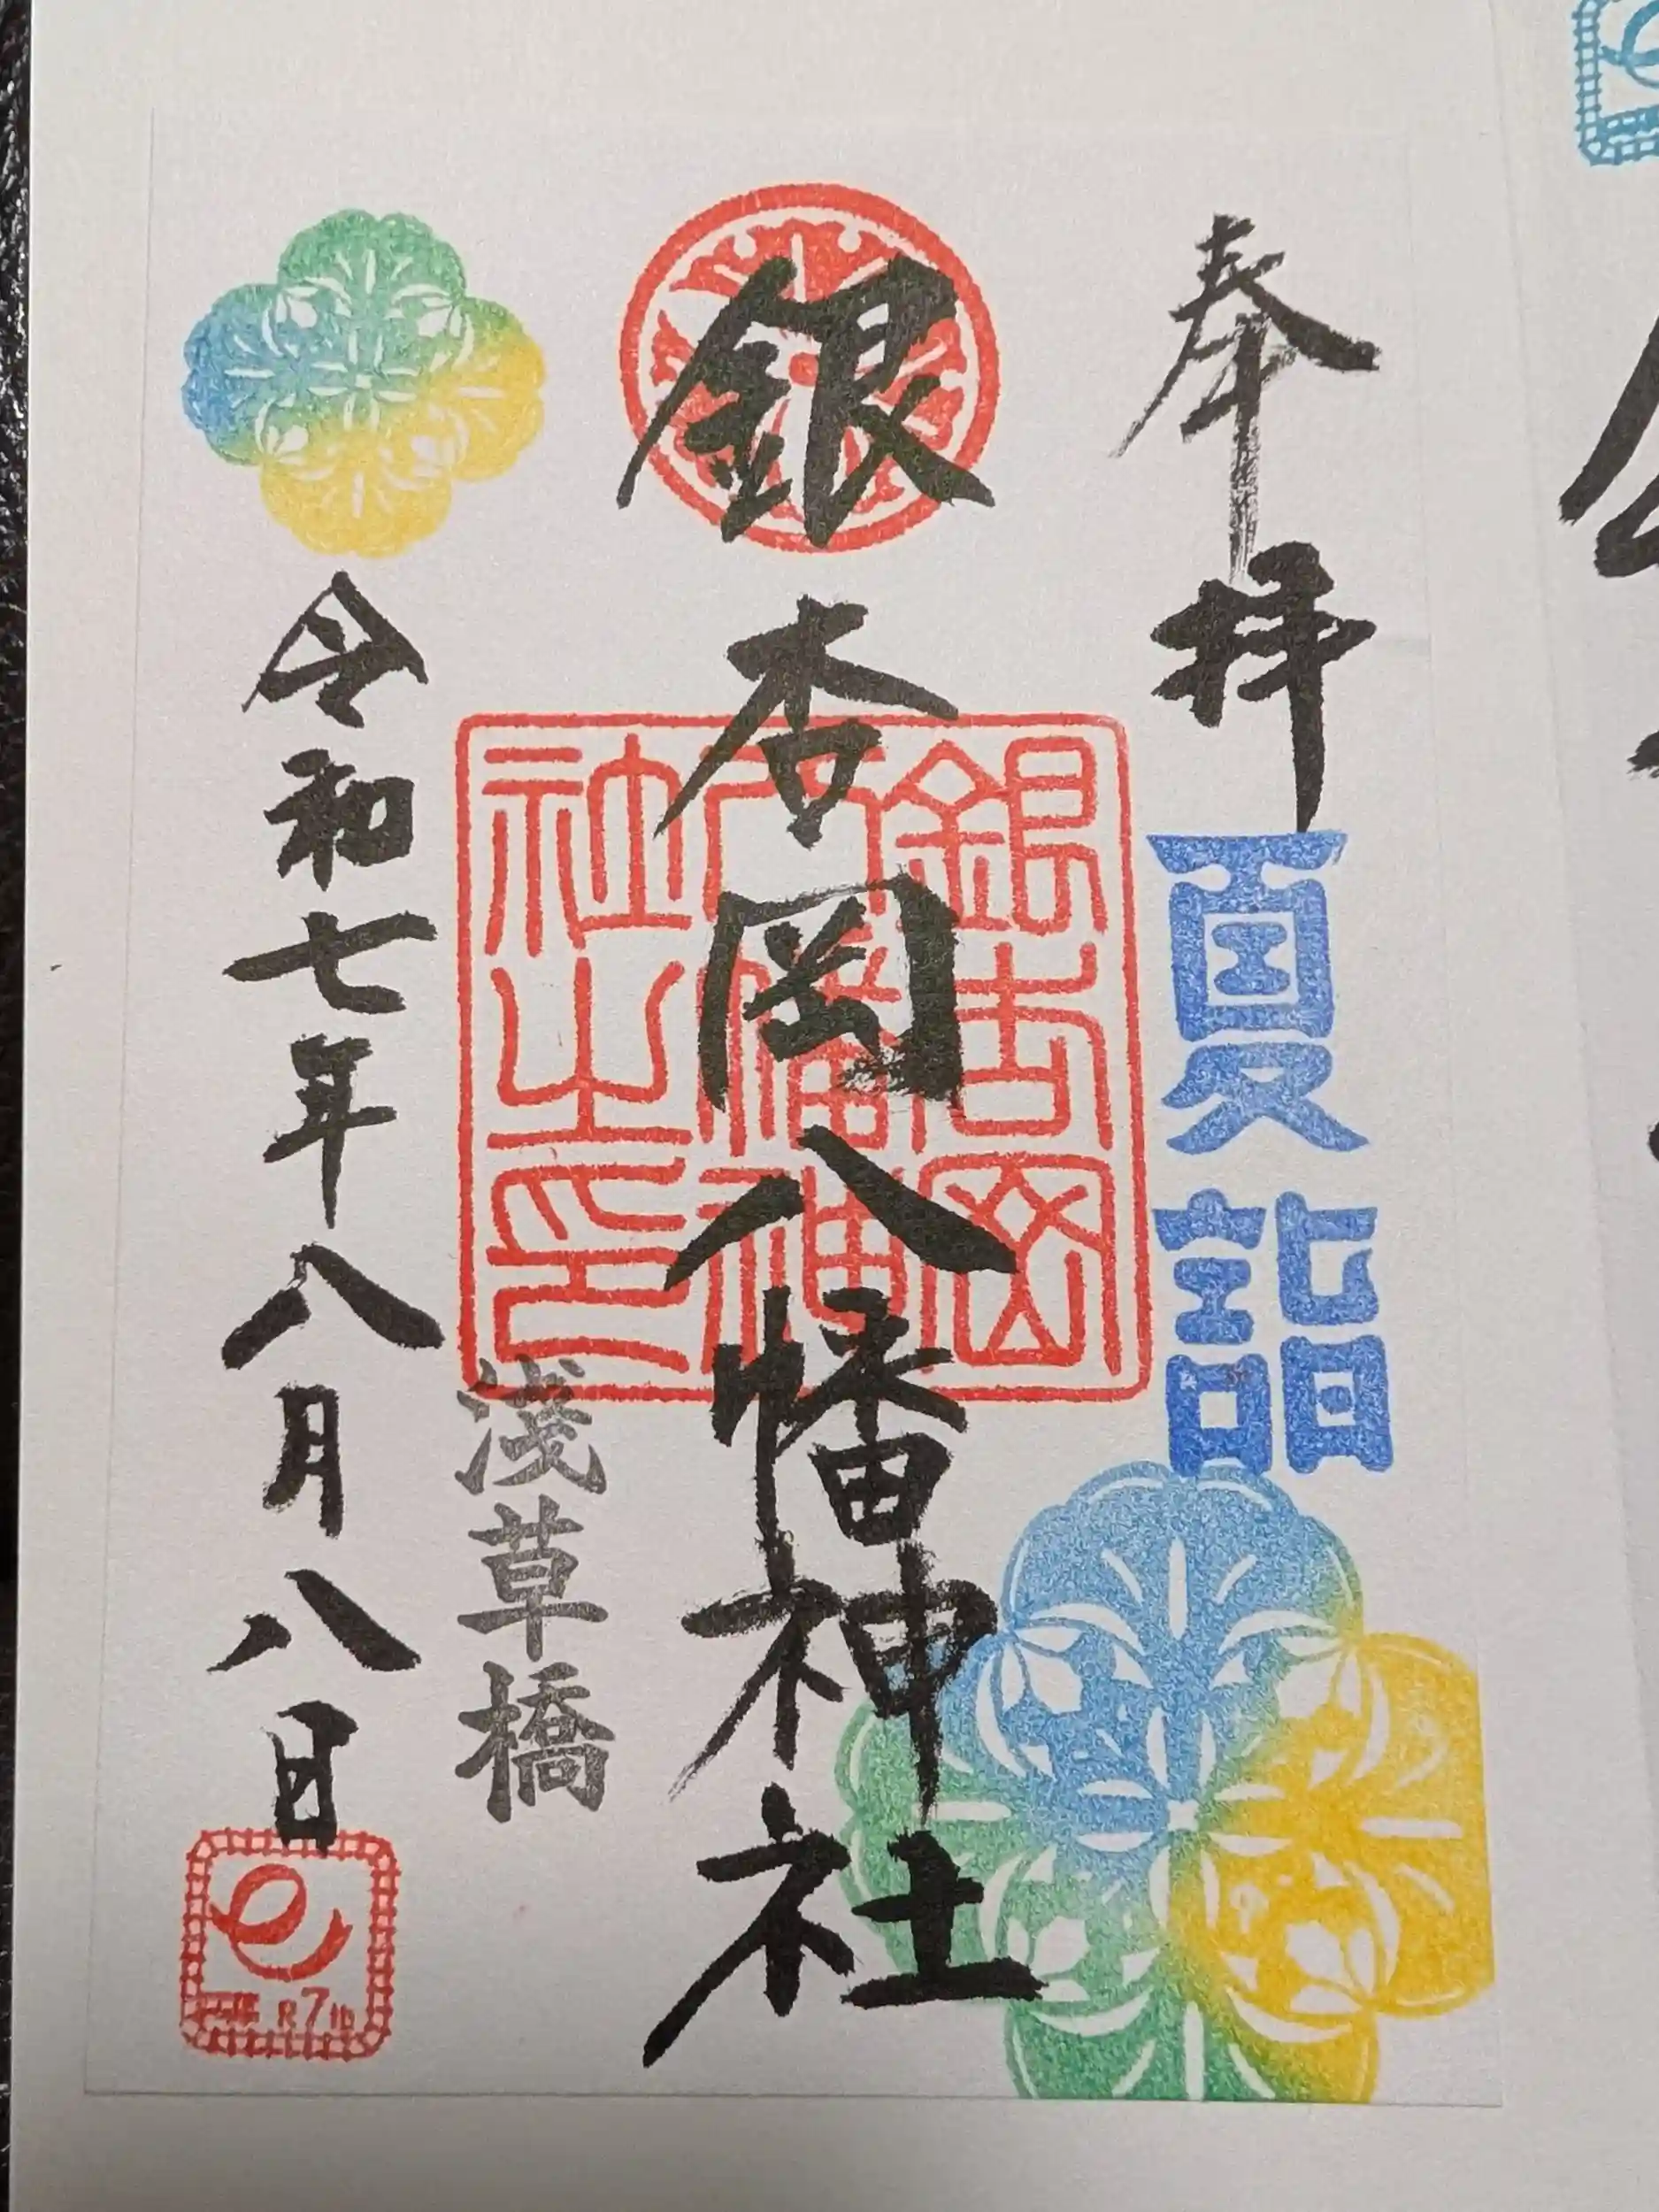 奉拝
夏詣
銀杏岡八幡神社
銀杏岡
八幡神
社之印
浅草橋
令和七年八月八日
R7